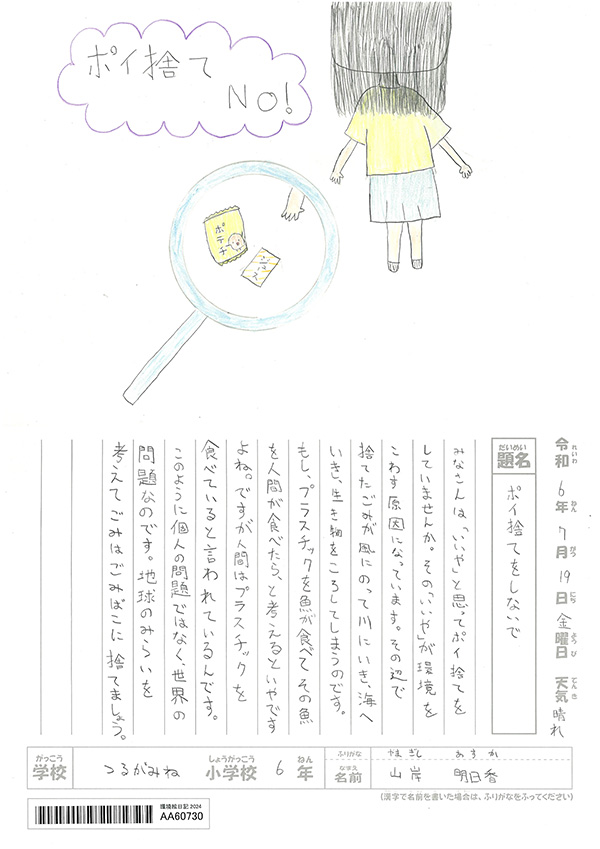 ポイ捨て
NO!
ポテチ
令和6年7月19日金曜日 天気 晴れ
れいわ ねん がつ にち ようび てんき
だいめい
題名
ポイ捨てをしないで
みなさんは、「いいや」と思ってポイ捨てを
していませんか。その「いいや」が環境を
こわす原因になっています。その辺で
捨てたごみが風にのって川にいき、海へ
いき、生き物をころしてしまうのです。
もし、プラスチックを魚が食べて、その魚
を人間が食べたら、と考えるといやです
よね。ですが人間はプラスチックを
食べていると言われているんです。
このように個人の問題ではなく、世界の
問題なのです。地球のみらいを
考えてごみはごみばこに捨てましょう。
がっこう しょうがっこう ねん
学校 つるがみね 小学校 6年
ふりがな やまぎし あすか
なまえ
名前 山岸 明日香
(漢字で名前を書いた場合は、ふりがなをふってください)
環境絵日記 2024
AA60730